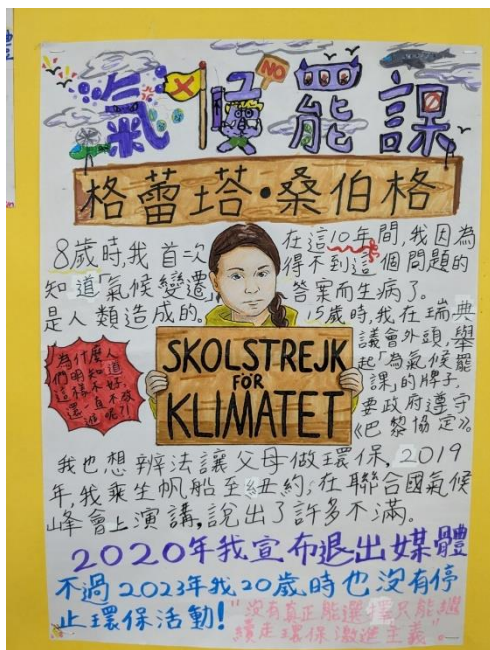 氣候罷課
NO
格蕾塔·桑伯格
8歲時,我首次
知道「氣候變遷」
是人類造成的。
在這10年間,我因為
得不到這個問題的
答案而生病了。
15歲時,我在瑞典
議會外頭,舉
起「為氣候罷
課」的牌子,
要政府遵守
《巴黎協定》。
為什麼人
們明知道
這樣不好
還一直不
呢?!
SKOLSTREJK
FÖR
KLIMATET
我也想辦法讓父母做環保,2019
年,我乘生帆船至紐約,在聯合國氣候
峰會上演講,說出了許多不滿。
2020年我宣布退出媒體
不過2023年我20歲時也沒有停
止環保活動!"沒有真正能選擇只能繼
續走環保激進主義"。